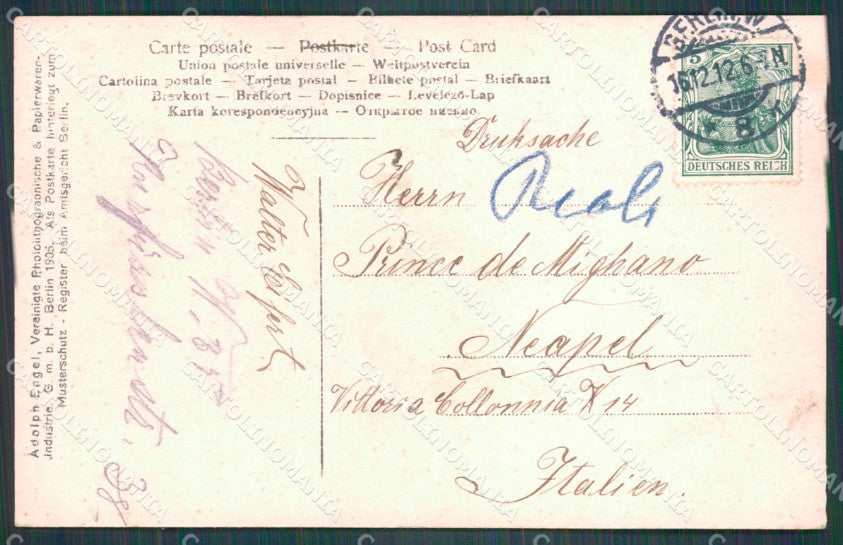 Carte postale — Postkarte — Post Card
Union postale universelle — Weltpostverein
Cartolina postale — Tarjeta postal — Bilhete postal — Briefkaart
Brevkort — Brefkort — Dopisnice — Levelező-Lap
Karta korespondencyjna — Открытое письмо.
Adolph Engel, Vereinigte Photolithographische & Papierwaren-
Jndustrie, G. m. b. H. Berlin 1905. Als Postkarte hinterlegt zum
Musterschutz - Register beim Amtsgericht Berlin.
Berlin W.
Walter
BERLIN W
16.12.12.6-7N
* 8 r
5
DEUTSCHES REICH
Druksache
Herrn
Prince de Mighano
Neapel
Vittoria Collonnia 14
Italien.
CARTOLINOMANIA